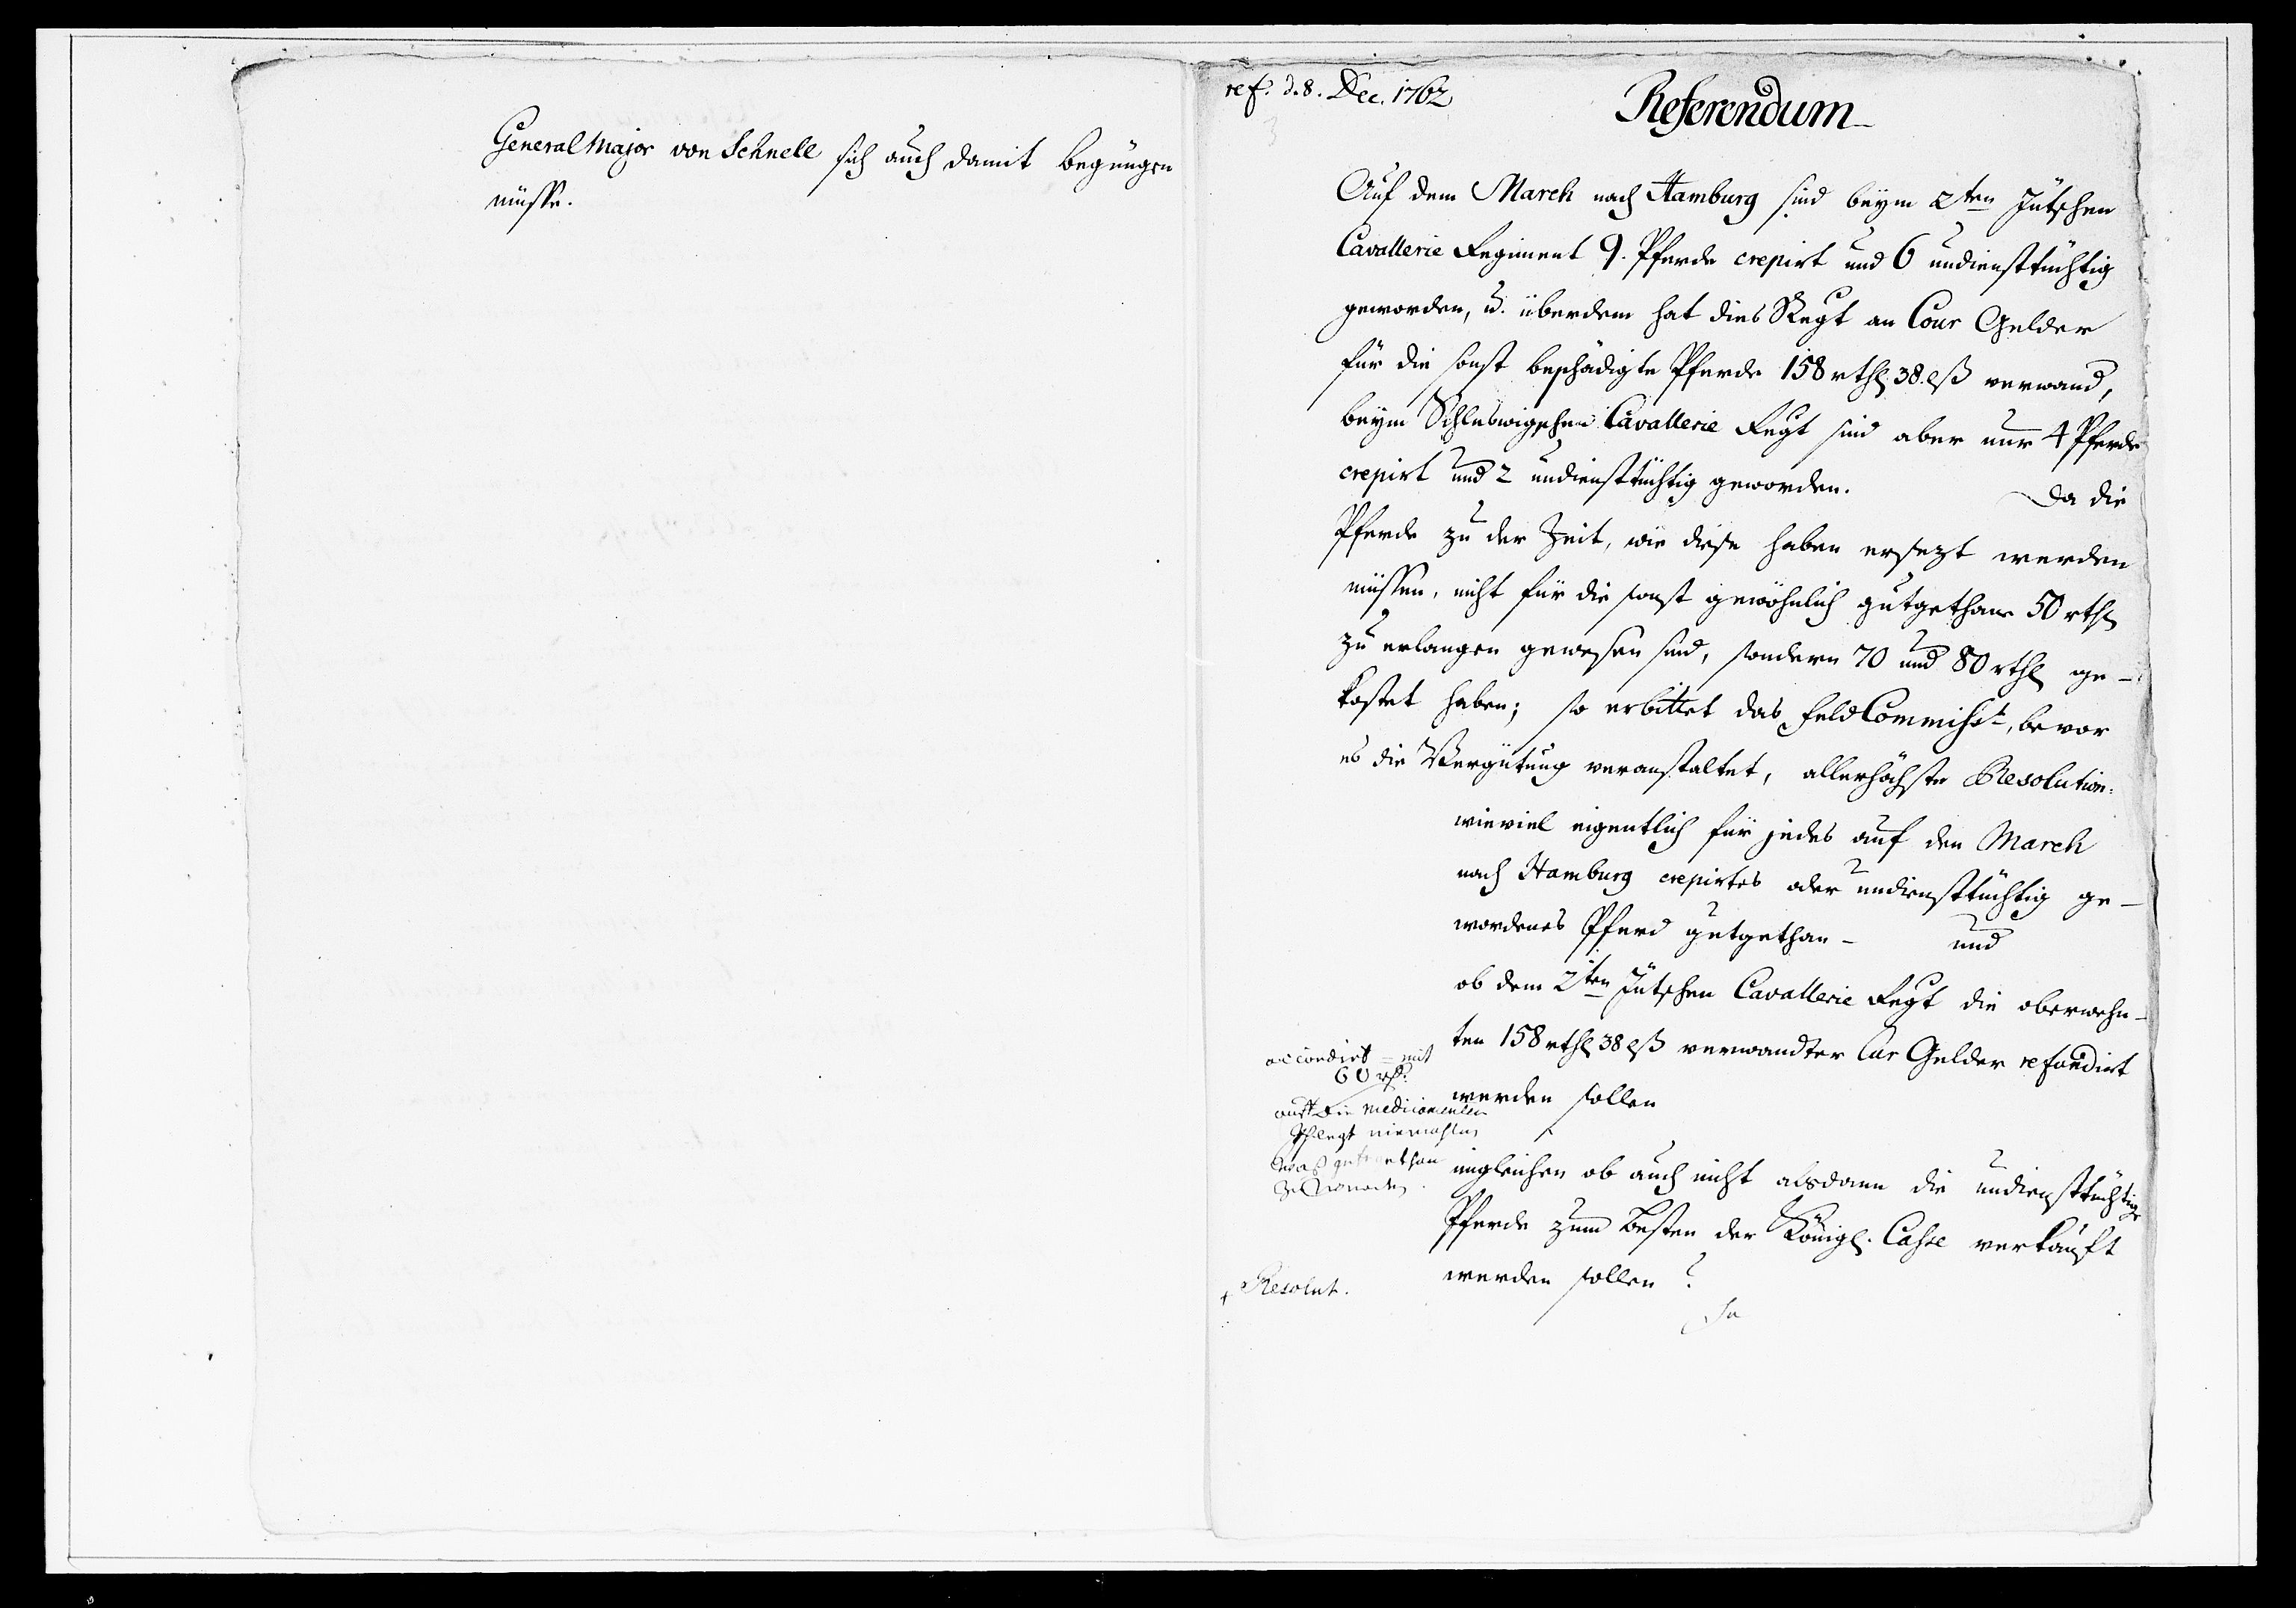 General Major von Schnell sich auch damit begnügen
müsse.
ref. d. 8. Dec. 1762
3
Referendum
Auf dem March nach Hamburg sind beÿm 2ten Jütschen
Cavallerie Regiment 9. Pferde crepirt und 6 undiensttüchtig
geworden, u. überdem hat dies Regt an Cour Gelder
für die sonst beschädigte Pferde 158 rthl 38. lß verwand,
beÿm Schleswigschen Cavallerie Regt sind aber nur 4 Pferde
crepirt und 2 undiensttüchtig geworden. Da die
Pferde zu der Zeit, wie diese haben ersezt werden
müssen, nicht für die sonst gewöhnlich gutgethane 50 rthl
zu erlangen gewesen sind, sondern 70 und 80 rthl ge-
kostet haben; so erbittet das Feld Commisst, bevor
es die Vergütung veranstaltet, allerhöchste Resolution:
wieviel eigentlich für jedes auf den March
nach Hamburg crepirtes oder undiensttüchtig ge-
wordenes Pferd gutgethan - und
ob dem 2ten Jütschen Cavallerie Regt die oberwehn-
ten 158 rthl 38 lß verwandter Cur Gelder refundirt
werden sollen
accordirt = mit
60 rth.
die medicamenten
pflegt niemahlen
gutgethan
zu werden.
imgleichen ob auch nicht alsdann die undiensttüchtige
Pferde zum Besten der Königl. Casse verkauft
werden sollen?
Resolut.
Ja